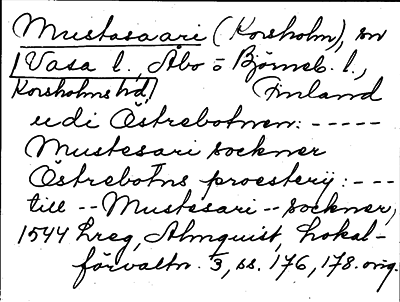 Mustasaari (Korsholm), sn
Vasa l., Åbo o Björneb. l.,
Korsholms hd, Finland
udi Östrebotnen: -----
Mustesari sockner
Östrebotns proesterij: ---
till -- Mustesari -- sockner,
1544 hreg, Almquist, Lokal-
förvaltn. 3, ss. 176, 178. orig.